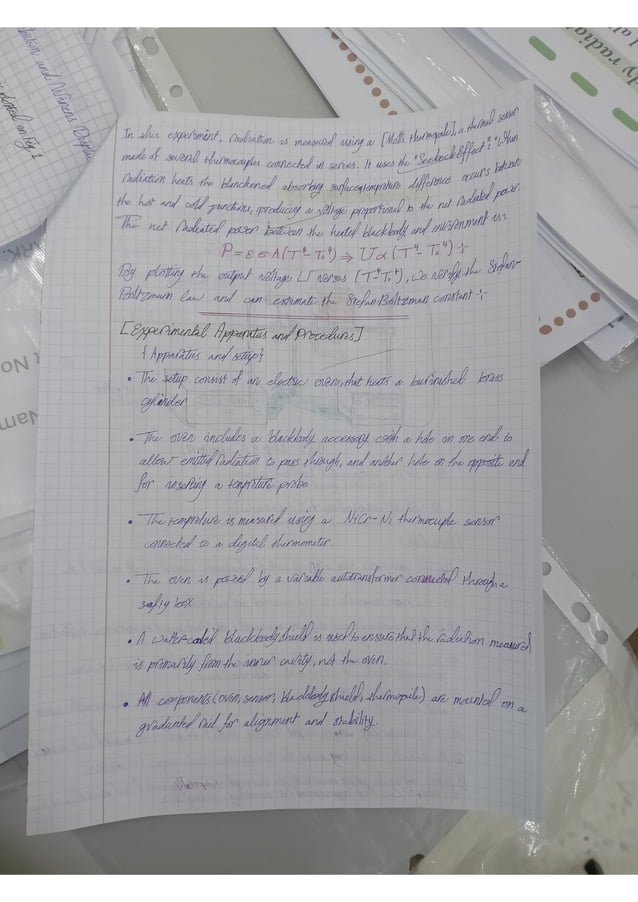 In this experiment, radiation is measured using a [Moll's thermopile], a thermal sensor
made of several thermocouples connected in series. It uses the "Seebeck Effect": "when
radiation heats the blanckened absorbing surface, temperature difference occurs between
the hot and cold junctions, producing a voltage proportional to the net radiated power.
The net radiated power between the heated blackbody and environment is:
P = εσA(T⁴ - T₀⁴) ⇒ U α (T⁴ - T₀⁴)
By plotting the output voltage U versus (T⁴-T₀⁴), we verify the Stefan-
Boltzmann law and can estimate the Stefan Boltzman constant
[Experimental Apparatus and Procedures]
{Apparatus and setup}
• The setup consist of an electric oven, that heats a burnished brass
cylinder
• The oven includes a blackbody accessory with a hole on one end to
allow emitted radiation to pass through, and another hole on the opposite end
for inserting a temprature probe
• The temprature is measured using a NiCr-Ni thermocuple sensor
connected to a digital thermometer.
• The oven is powered by a variable autotransformer connected through a
safty box
• A water-cooled blackbody shield is used to ensure that the radiation measured
is primarily from the inner cavity, not the oven.
• All components (oven, sensor, blackbody shield, thermopile) are mounted on a
graduated rail for alignment and stability.
y radia
Nam
t No
on Fig 1